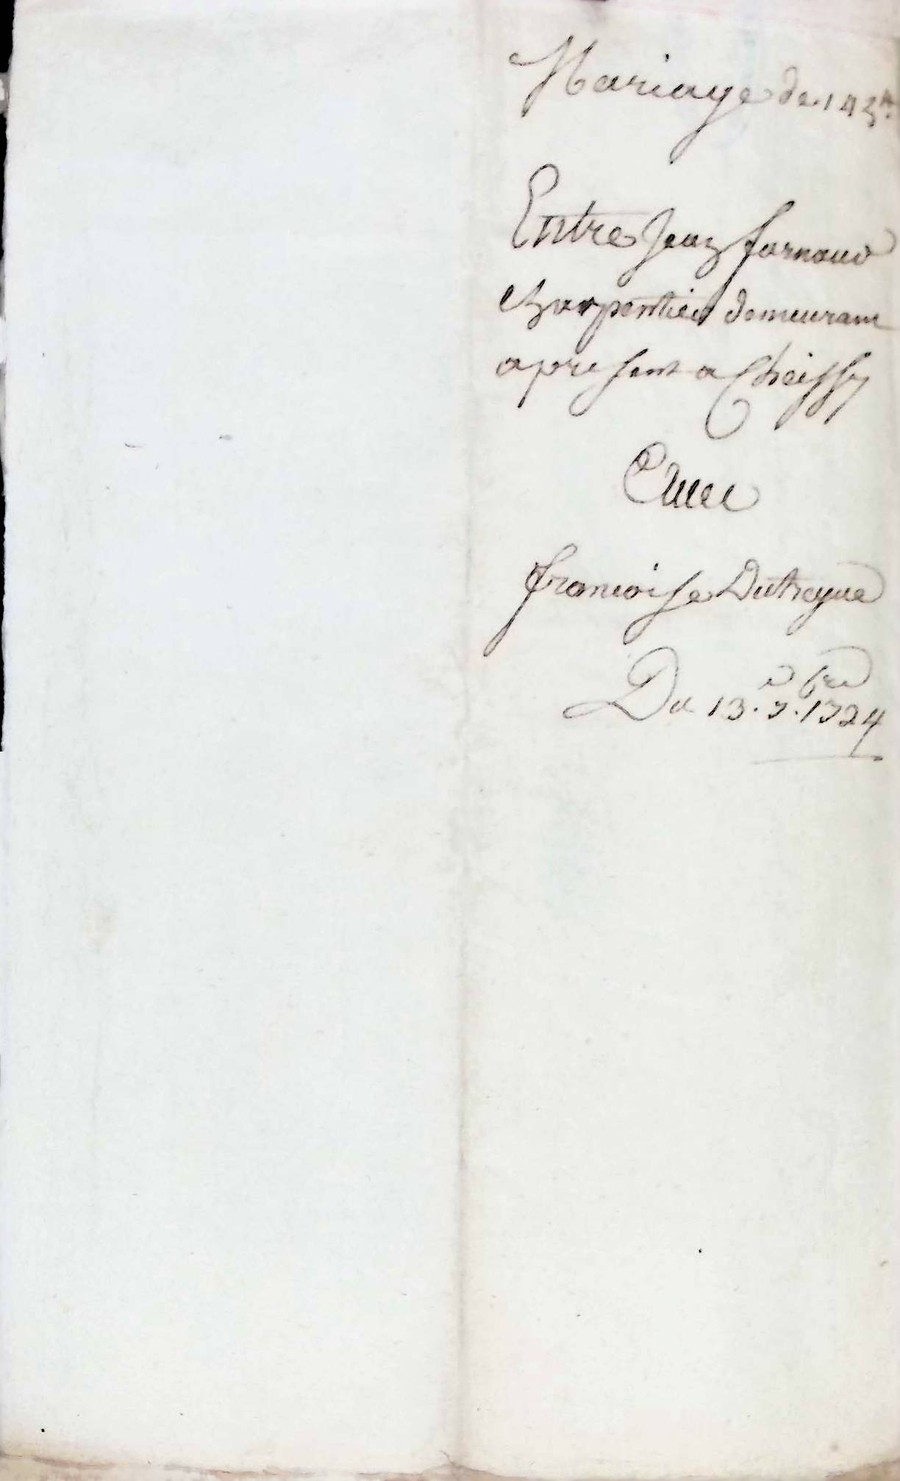 Mariage de 145ᵗᵗ
Entre Jean farnaud
charpentier demeurant
apresent a Choissy
Avec
francoise Dutreyve
Du 13.e 7.bre 1724